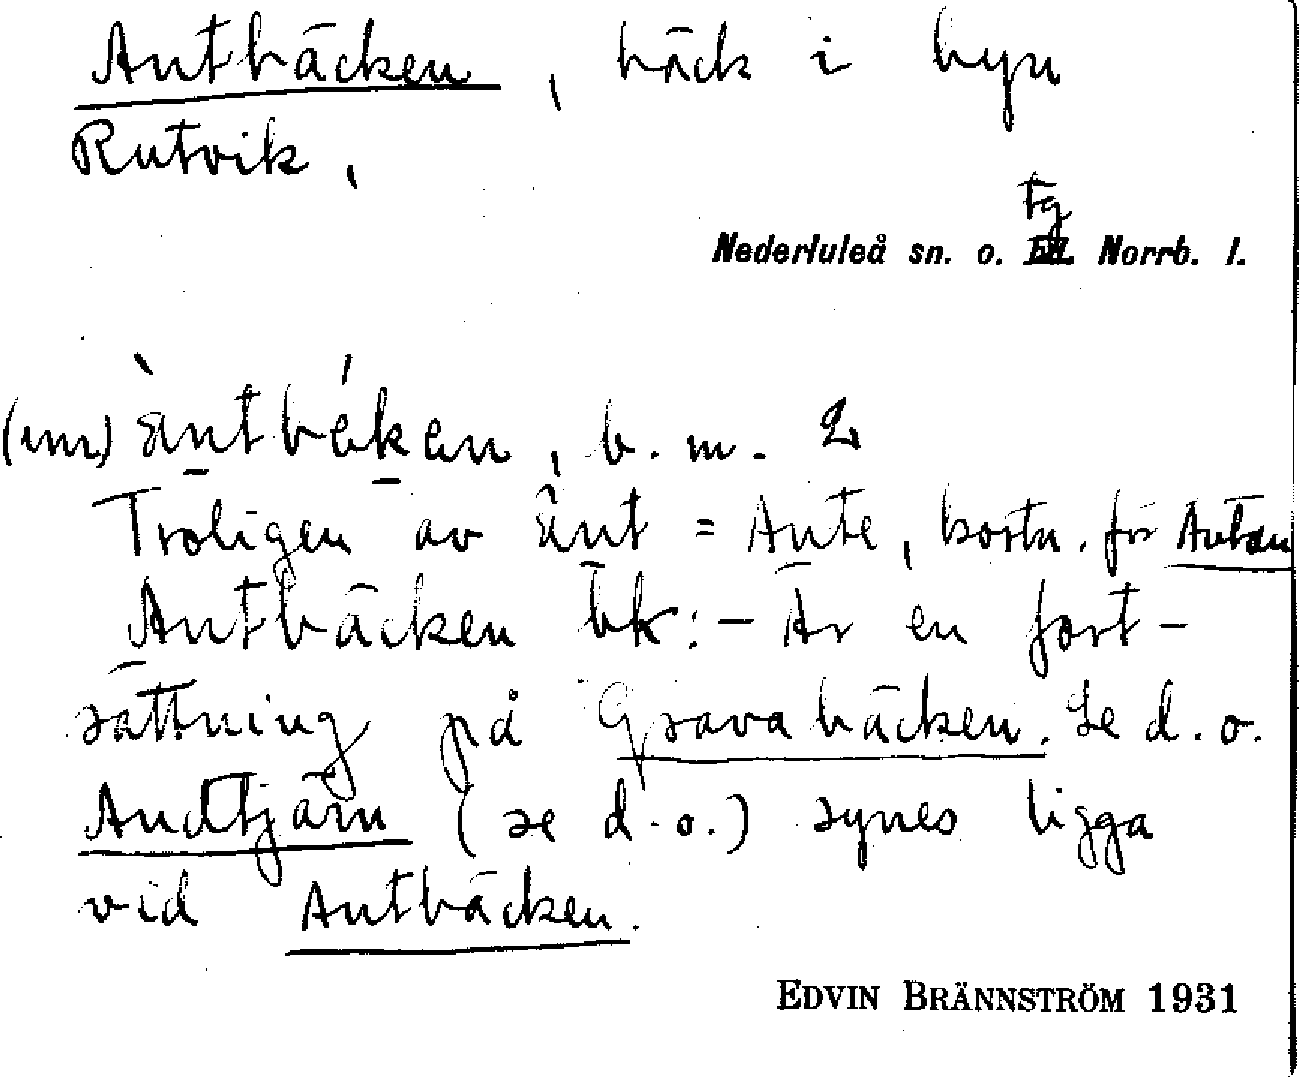 Antbäcken, bäck i byn
Rutvik,
tg
Nederluleå sn. o. Norrb. l.
(um) àntbékan, b. m. 2
Troligen av änt = Ante, kortn. för Antan
Antbäcken bk: - Är en fort-
sättning på Gravabäcken. Se d. o.
Andtjärn (se d. o.) synes ligga
vid Antbäcken.
EDVIN BRÄNNSTRÖM 1931